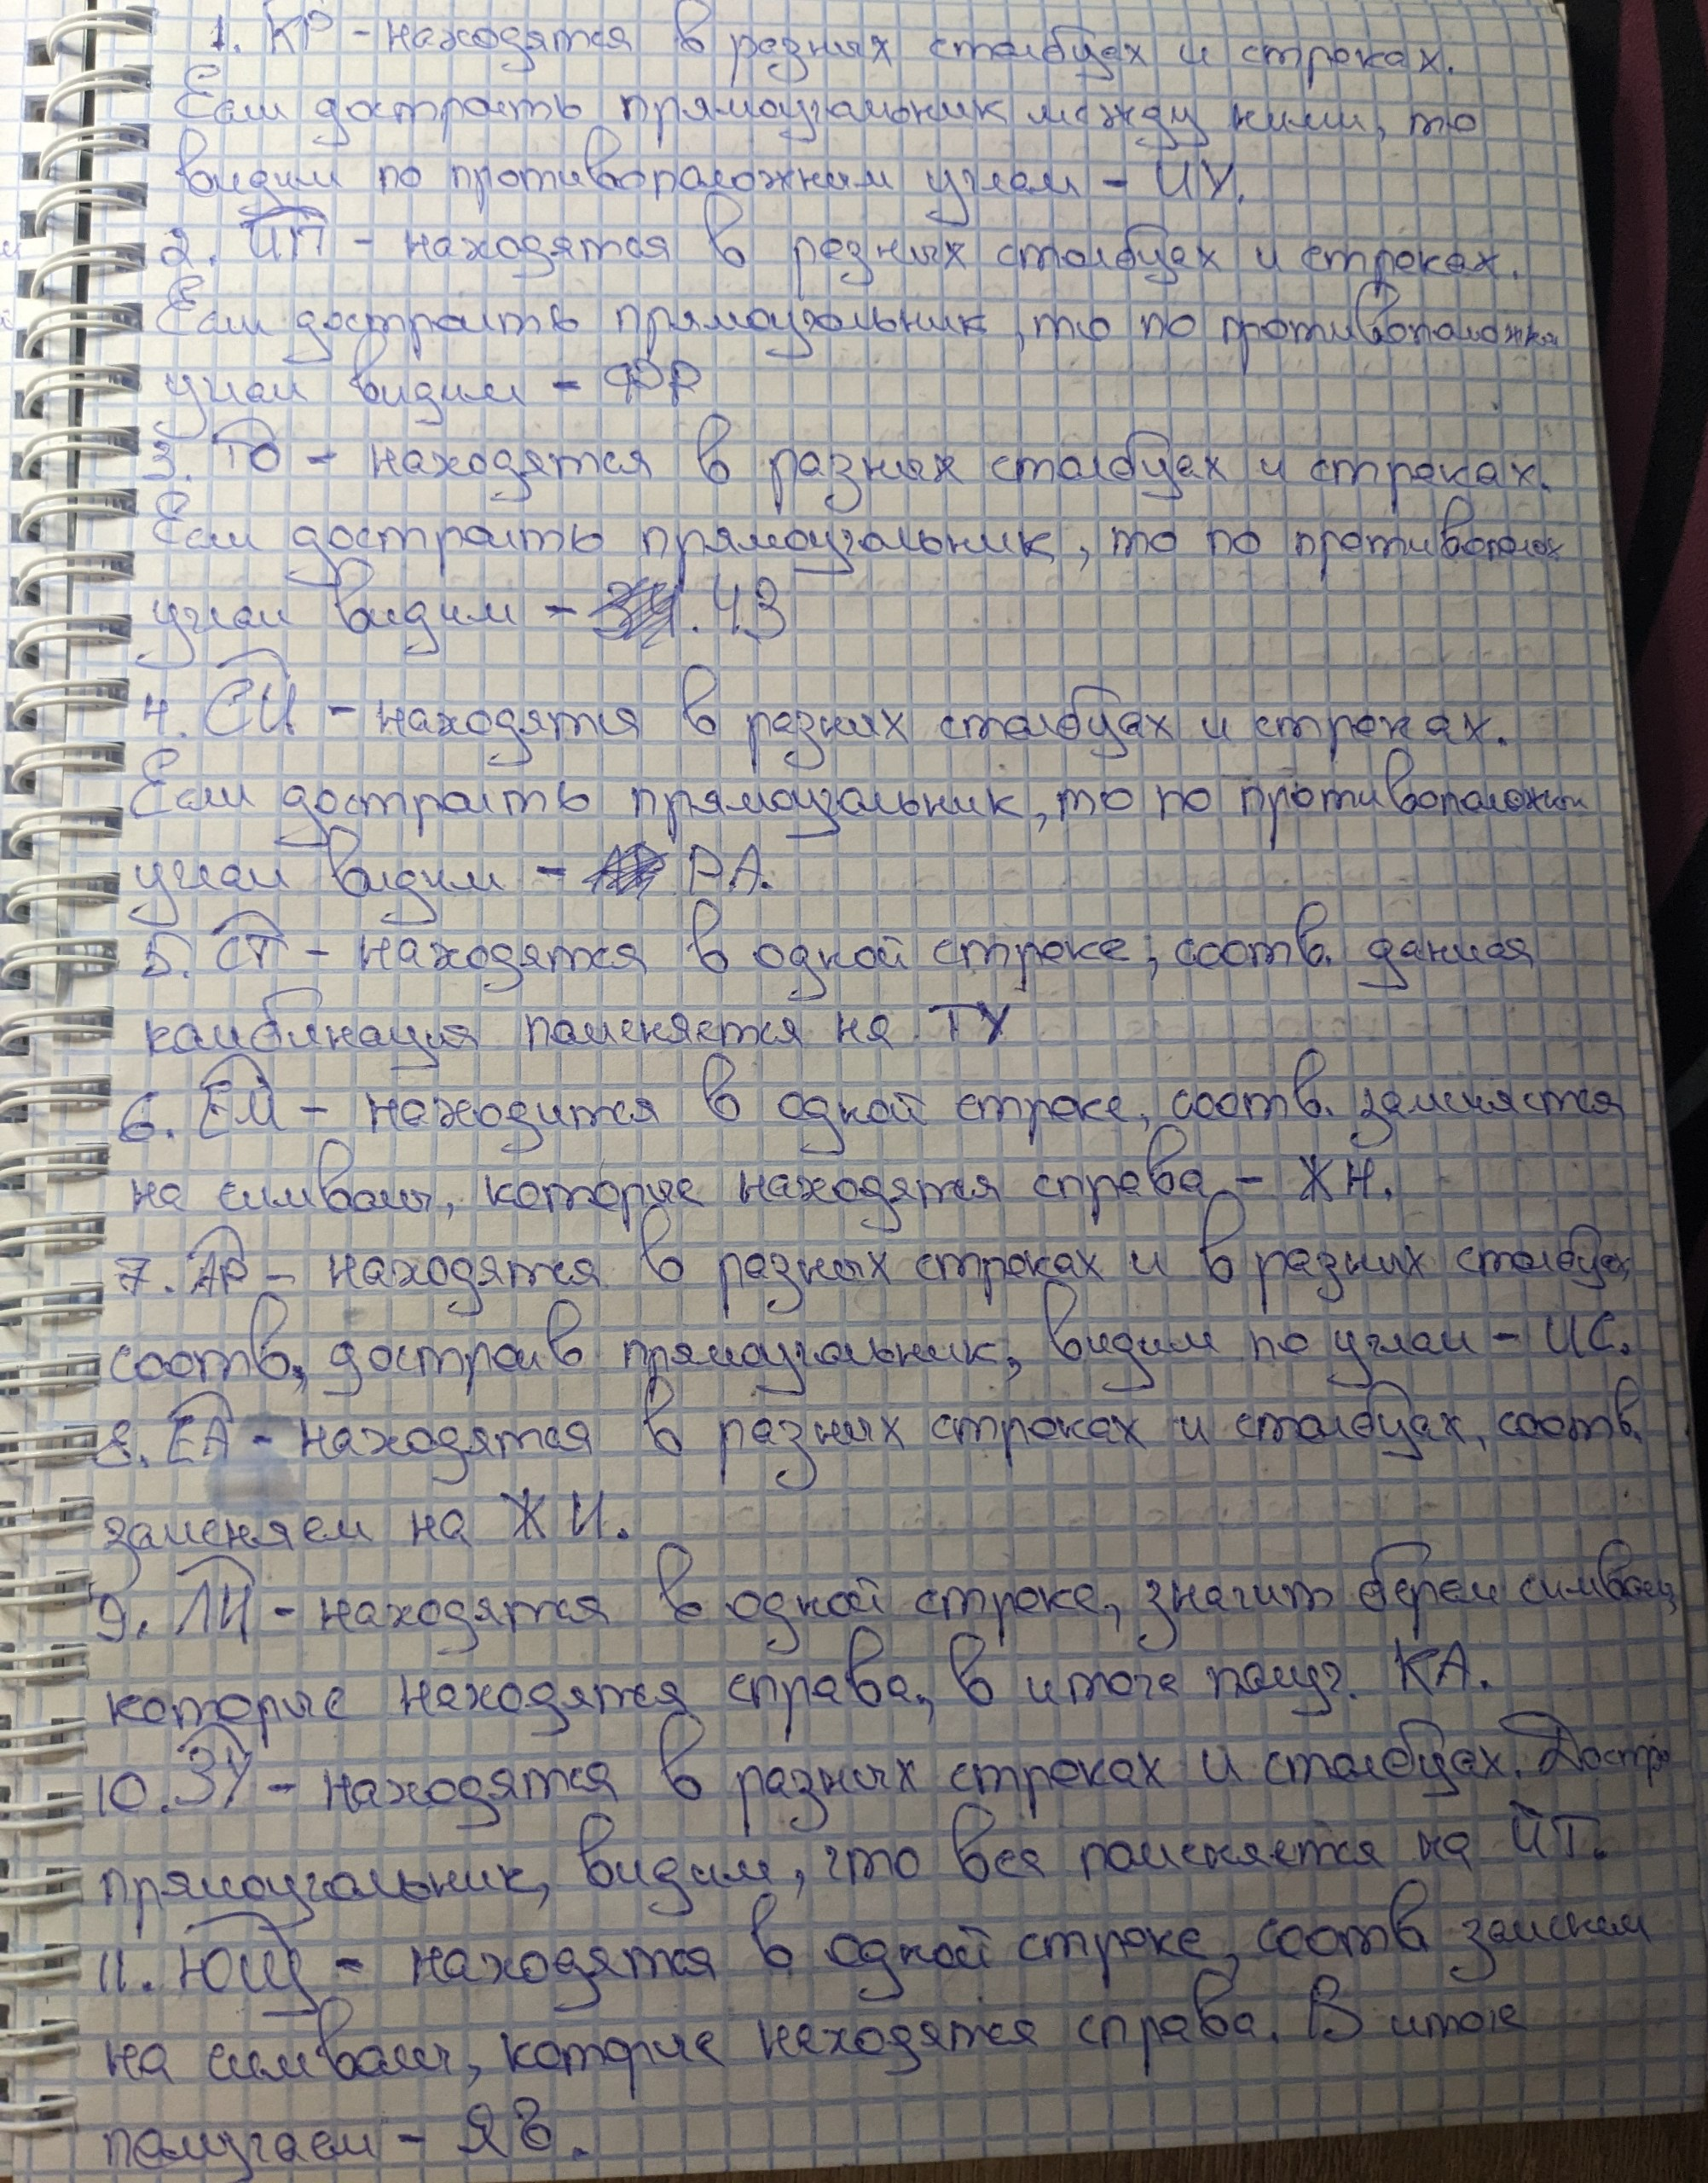 1. КР - находятся в разных столбцах и строках.
Если достроить прямоугольник между ними, то
видим по противоположным углам - ИУ.
2. ЦП - находятся в разных столбцах и строках.
Если достроить прямоугольник, то по противоположн
углам видим - ФР
3. ТО - находятся в разных столбцах и строках.
Если достроить прямоугольник, то по противополож
углам видим -
4. СИ - находятся в разных столбцах и строках.
Если достроить прямоугольник, то по противоположн
углам видим - РА.
5. СТ - находятся в одной строке, соотв. данная
комбинация поменяется на ТУ
6. ЕМ - находится в одной строке, соотв. заменяется
на символы, которые находятся справа - ЖН.
7. АР - находятся в разных строках и в разных столбцах
соотв, достроив прямоугольник, видим по углам - ИС.
8. ЕА - находятся в разных строках и столбцах, соотв.
заменяем на ЖИ.
9. ЛИ - находятся в одной строке, значит берем символы,
которые находятся справа, в итоге получ. КА.
10. ЗУ - находятся в разных строках и столбцах. Достро
прямоугольник, видим, что все поменяется на ЙТ.
11. ЮЩ - находятся в одной строке, соотв заменем
на символы, которые находятся справа. В итоге
получаем - ЯЪ.